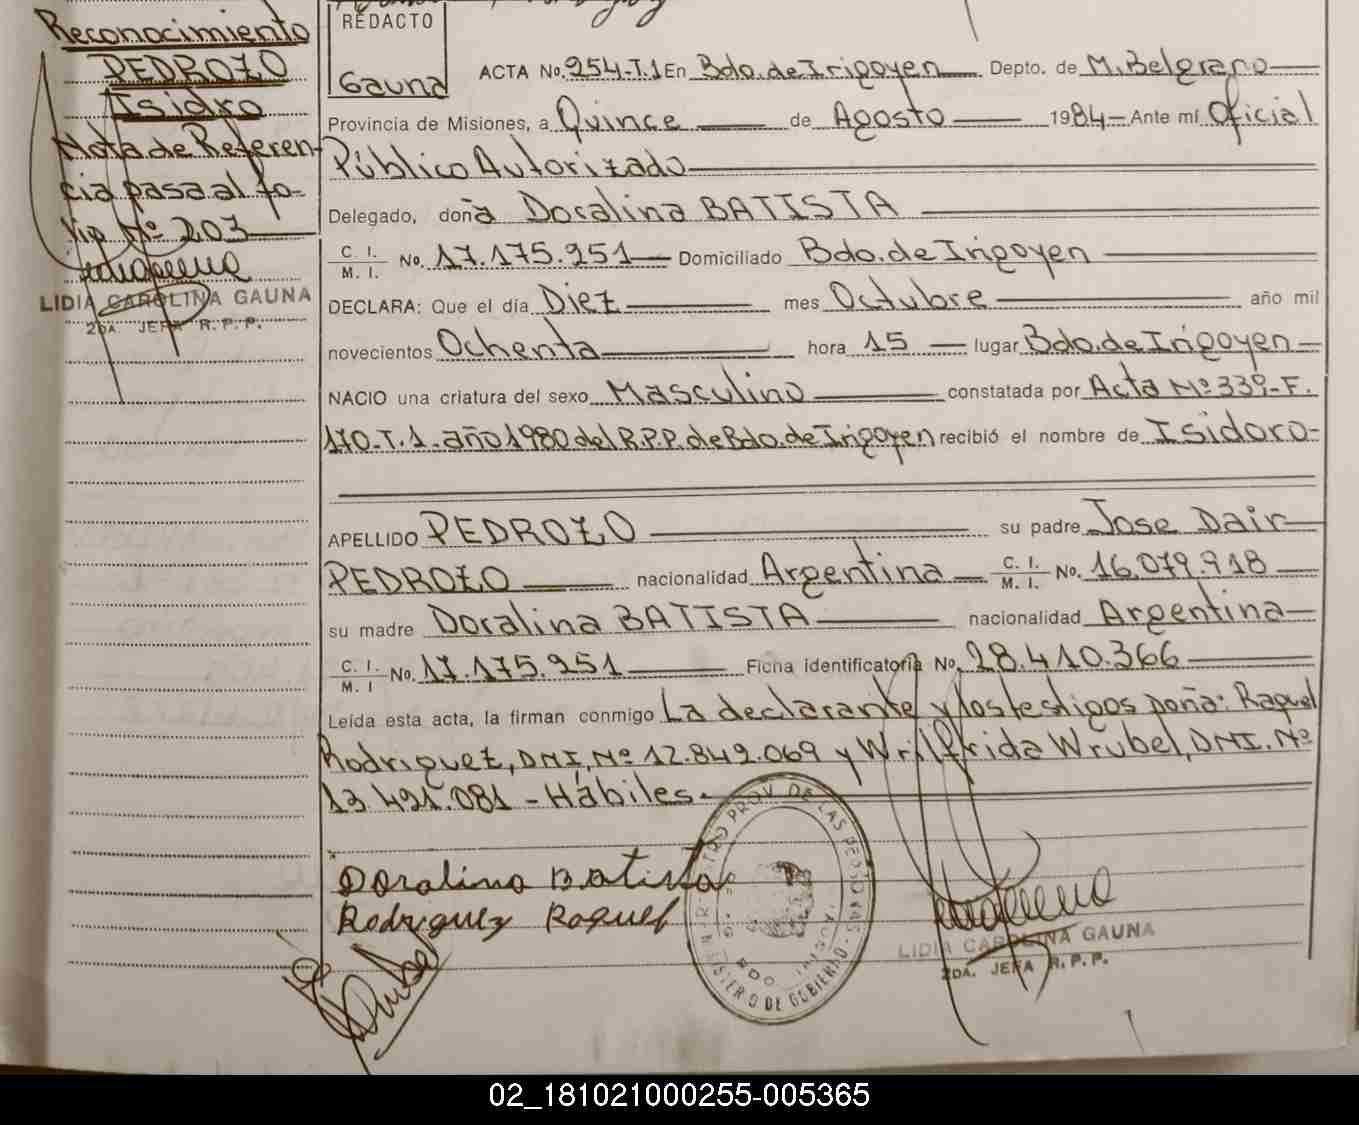 Reconocimiento
PEDROZO
Isidro
Nota de Referen
cia pasa al fo-
lio Nº 203
LIDIA CAROLINA GAUNA
2DA. JEFA R.P.P.
REDACTO
Gauna
ACTA No. 254-T.1 En Bdo. de Irigoyen Depto. de M. Belgrano
Provincia de Misiones, a Quince de Agosto 1984 - Ante mí Oficial
Público Autorizado
Delegado, doña Doralina BATISTA
C. I. / M. I. No. 17.175.251 Domiciliado Bdo. de Irigoyen
DECLARA: Que el día Diez mes Octubre año mil
novecientos Ochenta hora 15 lugar Bdo. de Irigoyen
NACIO una criatura del sexo Masculino constatada por Acta Nº 339-F.
170-T.1. año 1980 del R.P.P. de Bdo. de Irigoyen recibió el nombre de Isidoro
APELLIDO PEDROZO su padre Jose Dair
PEDROZO nacionalidad Argentina C. I. / M. I. No. 16.079.918
su madre Doralina BATISTA nacionalidad Argentina
C. I. / M. I No. 17.175.251 Ficha identificatoria No. 28.410.366
Leída esta acta, la firman conmigo La declarante y los testigos doña: Raquel
Rodriguez, DNI. Nº 12.842.069 y Wrilfrida Wrubel, DNI. Nº
13.491.081 - Hábiles.
Doralina Batista
Rodriguez Raquel
REGISTRO PROV. DE LAS PERSONAS
MINISTERIO DE GOBIERNO
LIDIA CAROLINA GAUNA
2DA. JEFA R.P.P.
02_181021000255-005365